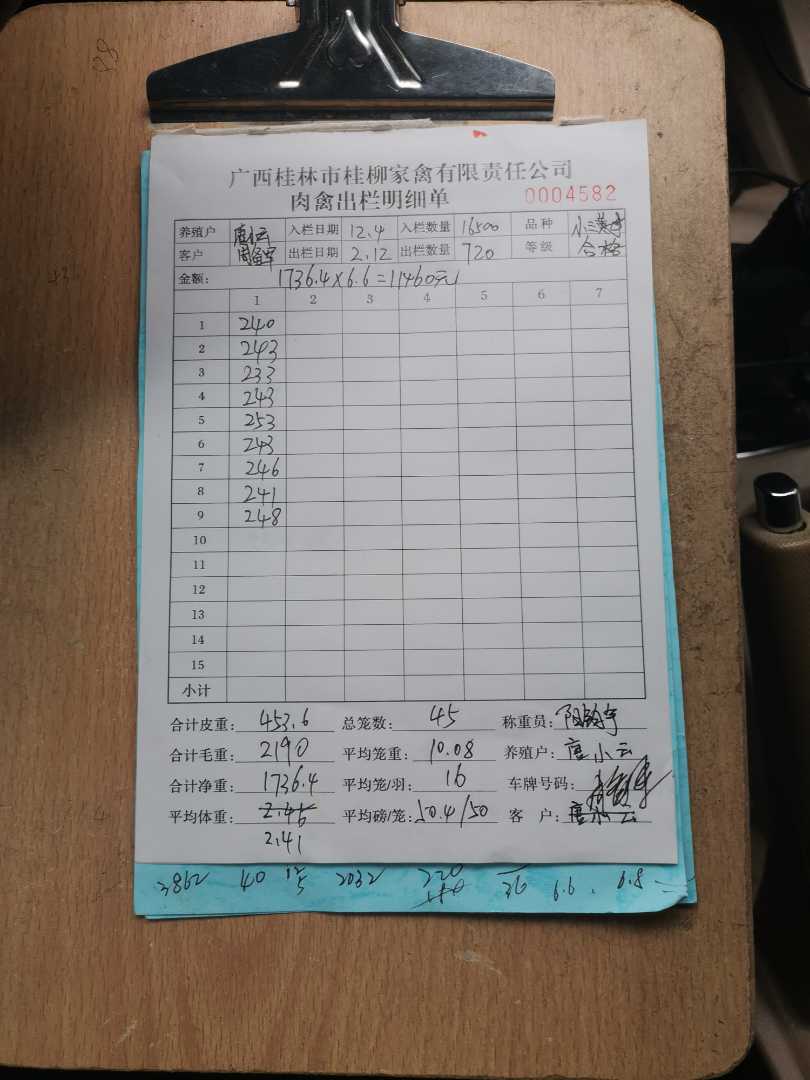 广西桂林市桂柳家禽有限责任公司
肉禽出栏明细单 0004582
养殖户 入栏日期 12.4 入栏数量 16500 品种
客户 出栏日期 2.12 出栏数量 720 等级 合格
金额: 1736.4×6.6=11460元
1 2 3 4 5 6 7
1 240
2 243
3 233
4 243
5 253
6 243
7 246
8 241
9 248
10
11
12
13
14
15
小计
合计皮重: 453.6 总笼数: 45 称重员:
合计毛重: 2190 平均笼重: 10.08 养殖户: 唐小云
合计净重: 1736.4 平均笼/羽: 16 车牌号码:
平均体重: 2.46 平均磅/笼: 50.4/50 客户: 唐小云
2.41
3862 40 2032 220 36 6.6. 6.8